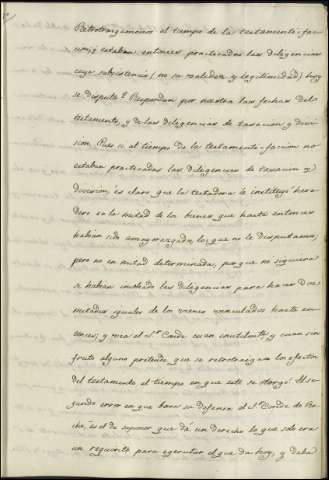 Retrotraigamonos al tiempo de la testamenti-fac-
cion; y estaban entonces practicadas las diligencias
cuya subsistencia (no su realidad y legitimidad) hoy
se disputa? Respondan por nosotros las fechas del
testamento, y de las diligencias de tasacion y divi-
sion. Pues si al tiempo de la testamenti-faccion no
estaban practicadas las diligencias de tasacion y
division, es claro que la testadora le instituyó here-
dero en la mitad de los bienes que hasta entonces
habian sido amayorazgados, lo que no le disputamos;
pero no en mitad determinada, porque no siquiera
se habian incohado las diligencias para hacer dos
mitades iguales de los bienes vinculados hasta en-
tonces; y vea el Sr. Conde cuan inutilmente, y cuan sin
fruto alguno pretende que se retrotraigan los efectos
del testamento al tiempo en que este se otorgó. El se-
gundo error en que hace su defensa el Sr. Conde de
es el de suponer que dá un derecho lo que solo era
un requisito para egecutar el que da hoy, y debe